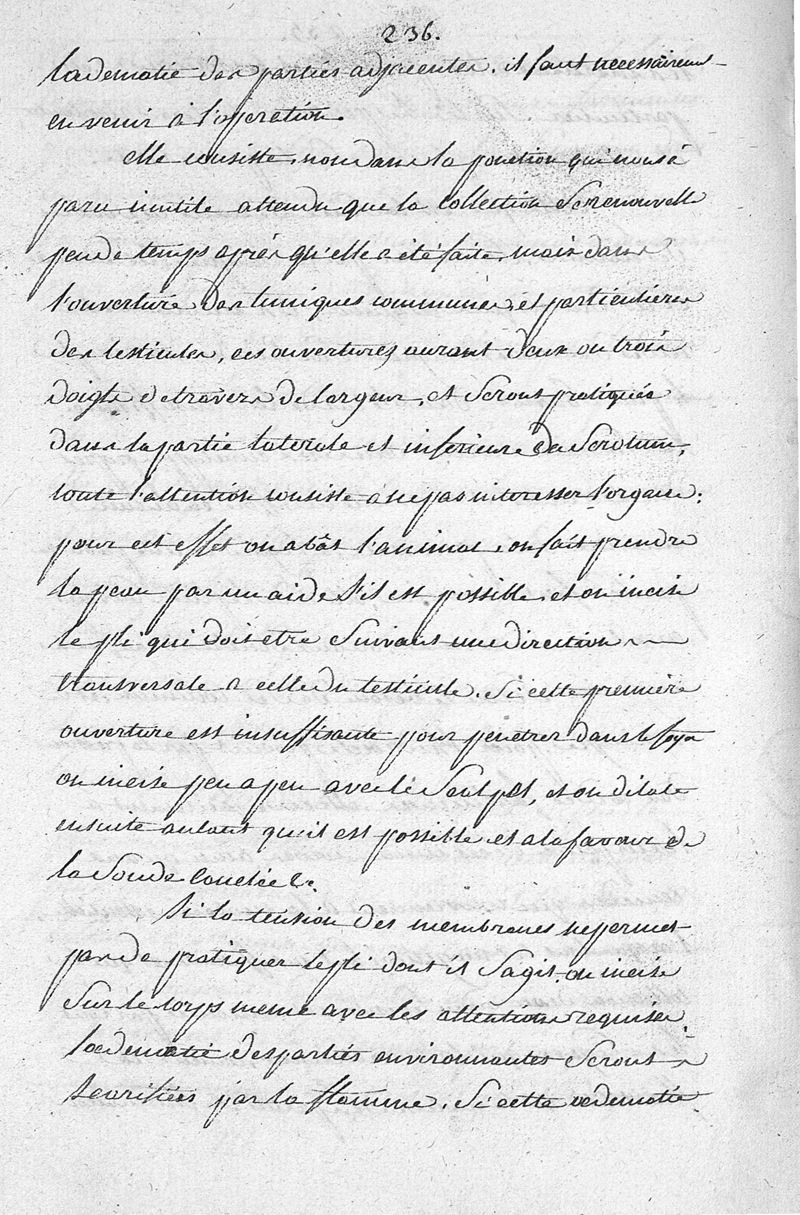 236.
ladematié des parties adjacentes. il faut necessairemt
en venir à l'operation.
elle consiste, non dans la ponction qui nous à
paru inutile attendu que la collection se renouvelle
peu de temps après qu'elle a été faite, mais dans
l'ouverture des tuniques communes, et particulieres
des testicules, ces ouvertures auront deux ou trois
doigts de travers de largeur, et seront pratiqués
dans la partie laterale et inferieure du scrotum,
toute l'attention consiste a ne pas interesser l'organe:
pour cet effet on abât l'animal, on fait prendre
la peau par un aide s'il est possible, et on incise
le pli qui doit etre suivant une direction
transversale a celle du testicule. si cette premiere
ouverture est insuffisante pour penetrer dans le foyer
on incise peu a peu avec le scalpel, et on dilate
ensuite autant qu'il est possible, et a la faveur de
la sonde canelée.
si la tension des membranes ne permet
pas de pratiquer le pli dont il sagit, on incise
sur le corps meme avec les attentions requises.
lœdematié des parties environnantes seront
scarifiées par la flamme. si cette œdematié